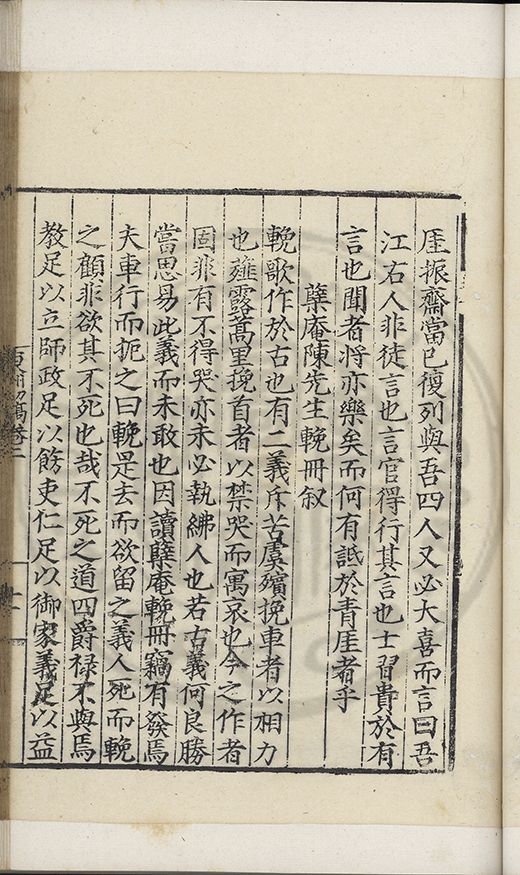 厓振齋當已復列與吾四人又必大喜而言曰吾
江右人非徒言也言官得行其言也士習貴於有
言也聞者將亦樂矣而何有詆於青厓者乎
櫱庵陳先生輓冊叙
輓歌作於古也有二義斥苦虞殯挽車者以相力
也薤露蒿里挽首者以禁哭而寓哀也今之作者
固非有不得哭亦未必執紼人也若古義何良勝
當思易此義而未敢也因讀櫱庵輓冊竊有發焉
夫車行而扼之曰輓是去而欲留之義人死而輓
之顧非欲其不死也哉不死之道四爵禄不與焉
教足以立師政足以飭吏仁足以御家義足以益